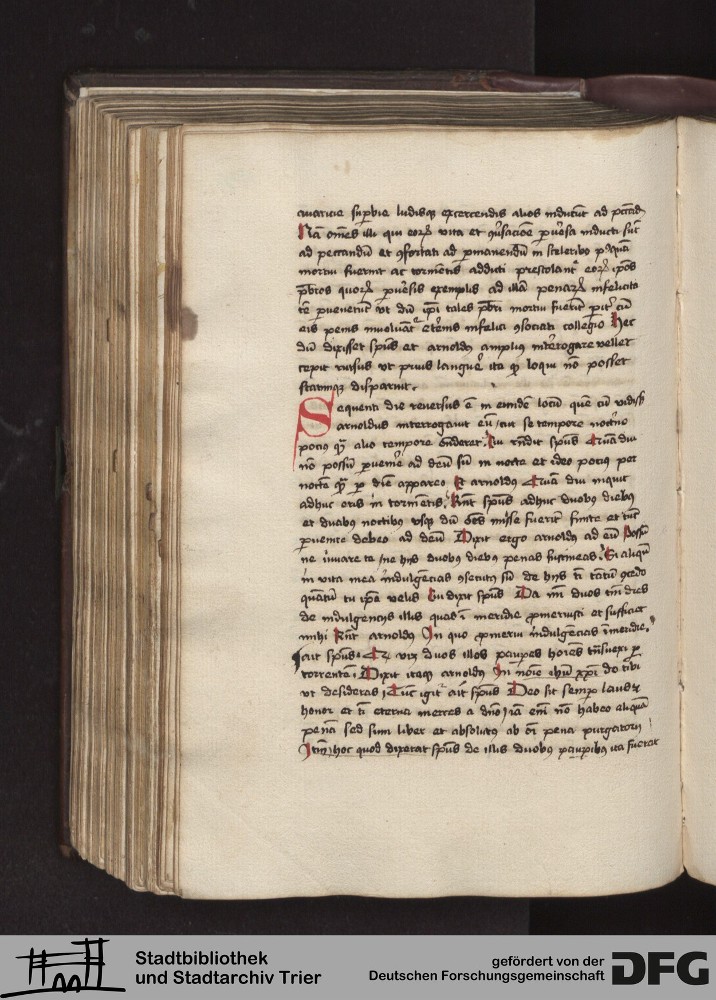 avaricie superbie ludisque exercendis alios inducunt ad
Nam omnes illi qui eorum vita et perversa inducti sunt
ad peccandum et confortati ad permanendum in sceleribus postquam
mortui fuerint ac tormentis adducti prestolantur eorum ipsos
pbros quorum perversis exemplis ad illam penarum infelicita
tem pervenerunt ut dum ipsi tales pbri mortui fuerint pariter cum
eis penis involvantur eternis infelici consociati collegio Hec
dum dixisset spus et arnoldus amplius interrogare vellet
cepit rursus ut prius languere ita quod loqui non posset
statimque disparuit.
Sequenti die reversus est in eundem locum quem cum vidisset
arnoldus interrogavit eum cur se tempore nocturno
potius quam alio tempore ostenderet. Cui respondit spus Quamdiu
non possum pervenire ad deum sum in nocte et ideo potius per
noctem quam per diem appareo Et arnoldus Quam diu inquit
adhuc eris in tormentis. Respondit spus adhuc duobus diebus
et duabus noctibus usque dum misse fuerint finite et tunc
pervenire debeo ad deum Dixit ergo arnoldus ad eum Possum
ne iuvare te ne hiis duobus diebus penas sustineas. Si aliquas
in vita mea indulgencias consecutus sum de hiis tibi tantum concedo
quantum tu ipse velis Cui dixit spus Da michi duos dies
de indulgencijs illis quas in meridie promeruisti et sufficiet
mihi Respondit arnoldus In quo promerui indulgencias in meridie.
ait spus. Quia vix duos illos pauperes homines transvexi per
torrentem. Dixit itaque arnoldus In nomine ihesu xpi do tibi
ut desideras Tunc igitur ait spus Deo sit semper laus et
honor et tibi eterna merces a domino iam enim non habeo aliquam
penam sed sum liber et absolutus ab omni pena purgatorij
Item hoc quod dixerat spus de illis duobus pauperibus ita fuerat
Stadtbibliothek
und Stadtarchiv Trier
gefördert von der
Deutschen Forschungsgemeinschaft
DFG